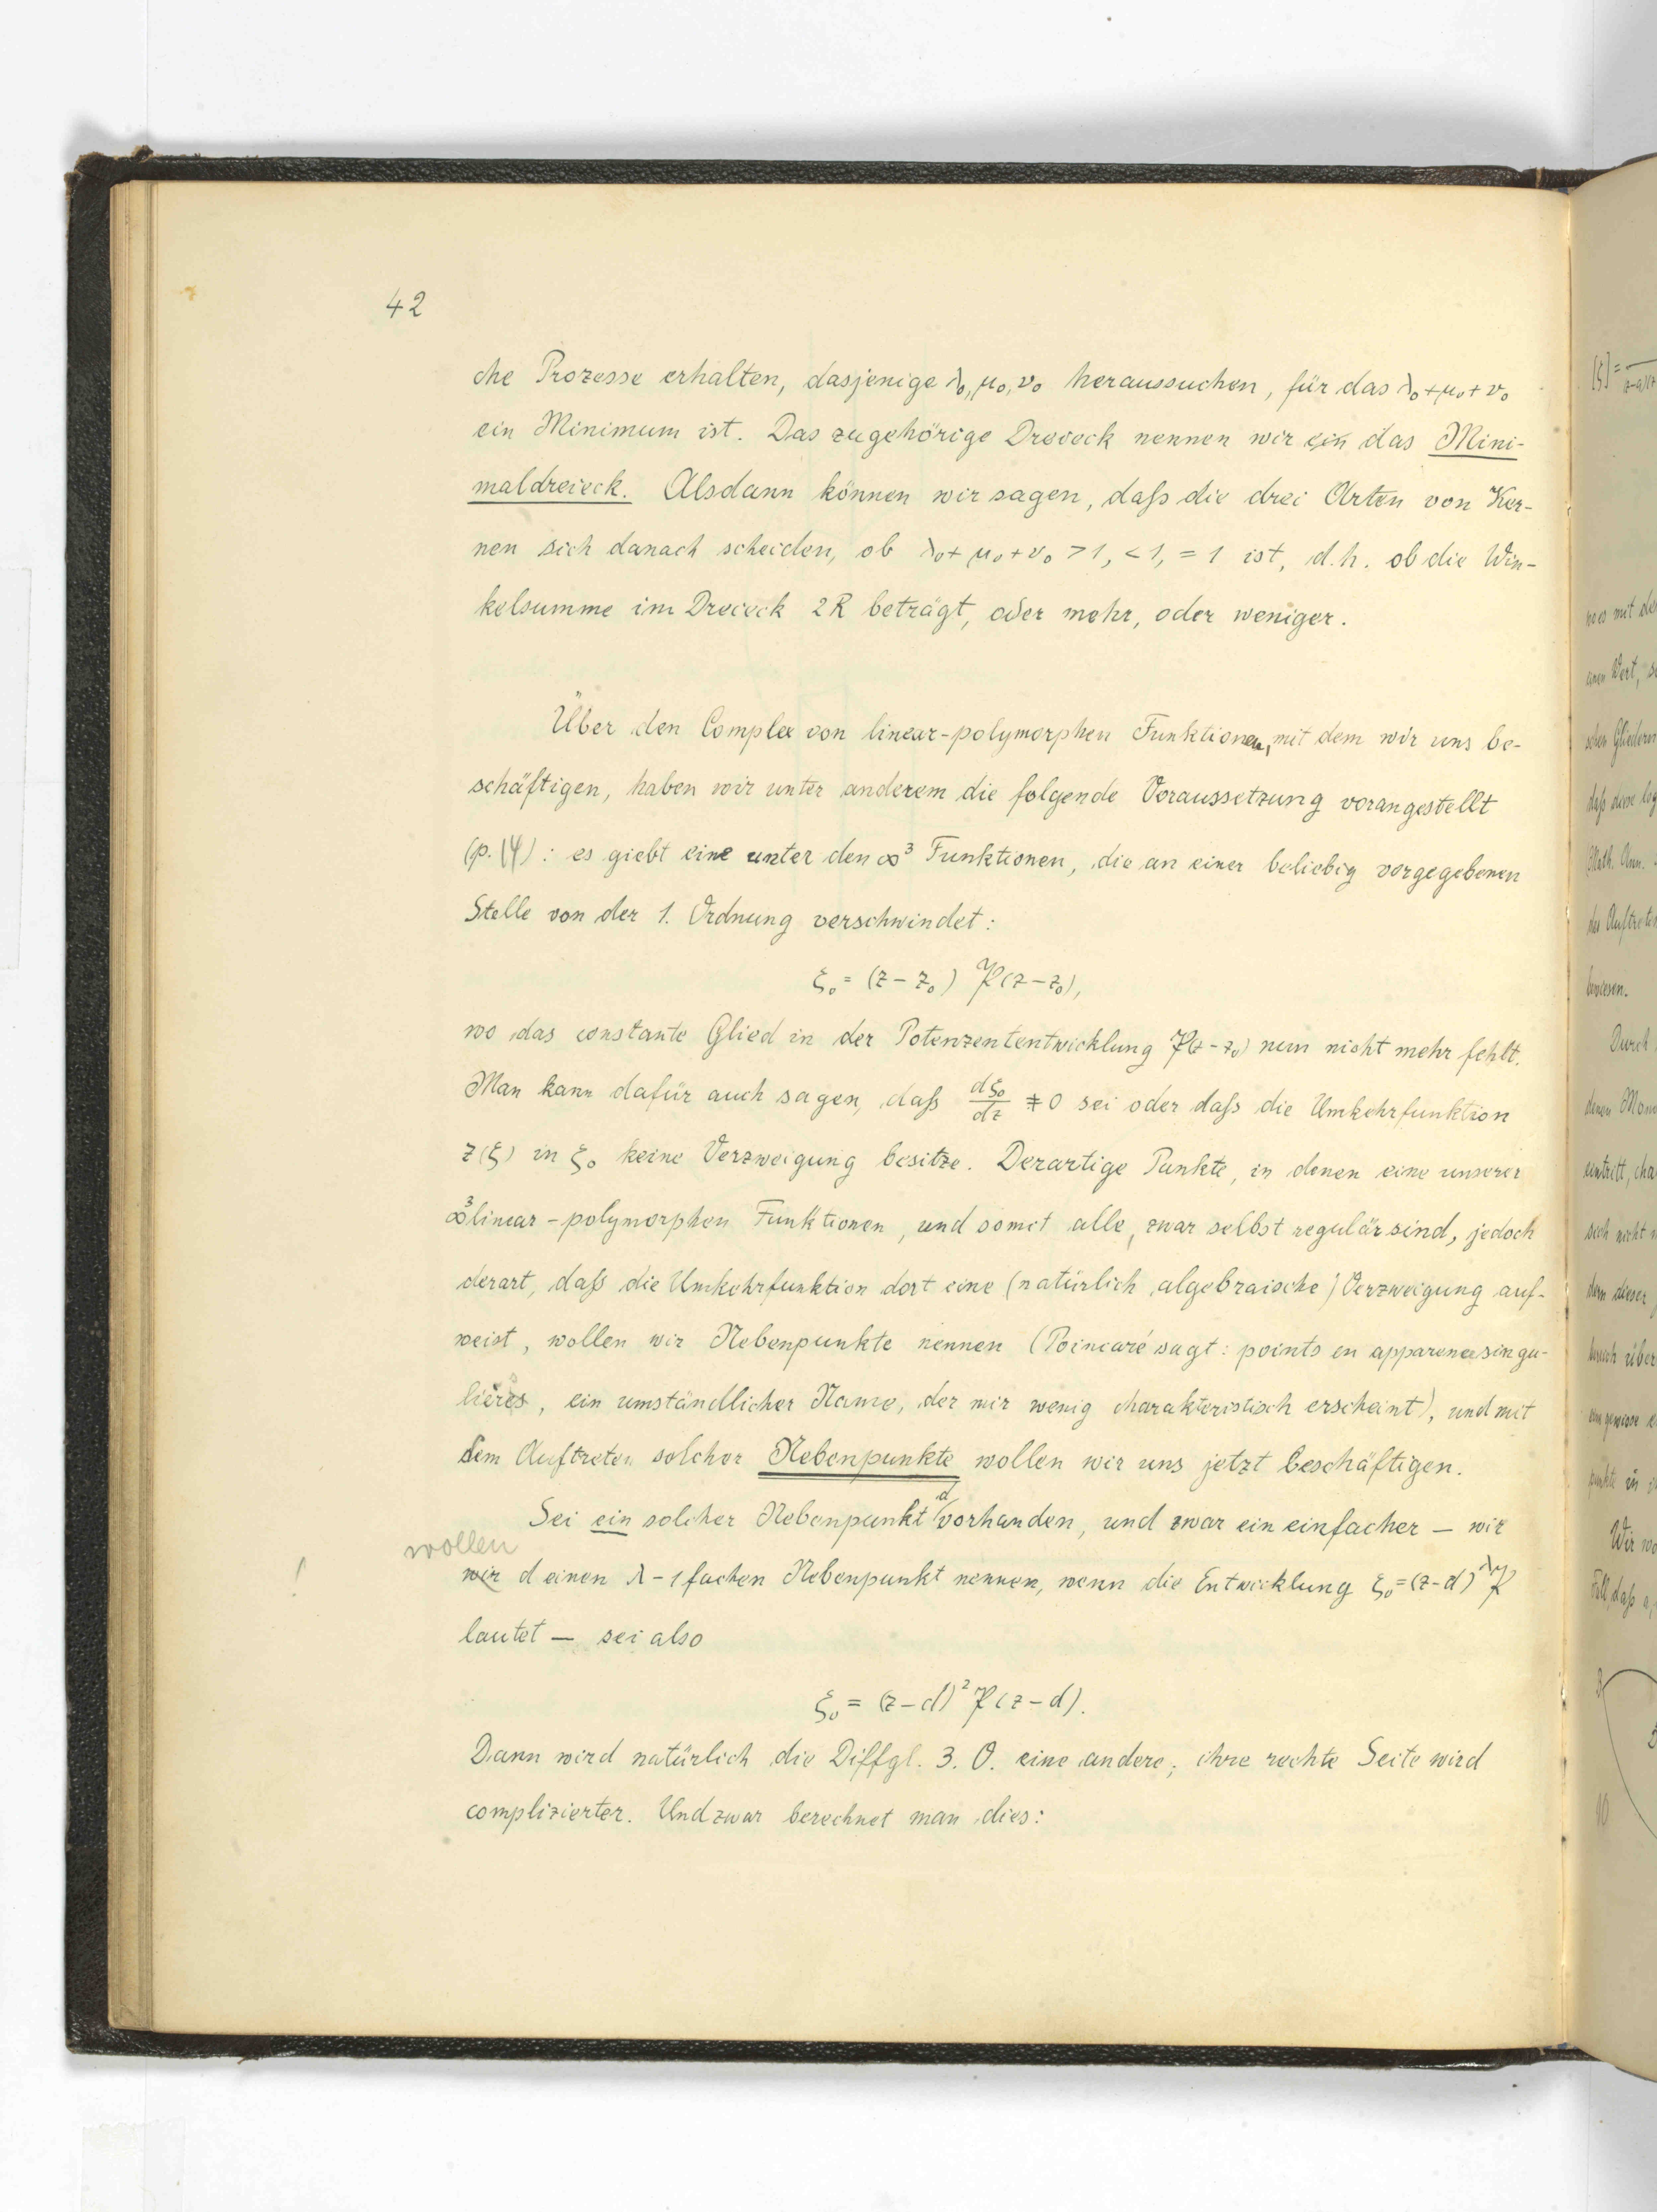 42
che Prozesse erhalten, dasjenige λ₀, μ₀, ν₀ heraussuchen, für das λ₀ + μ₀ + ν₀
ein Minimum ist. Das zugehörige Dreieck nennen wir ein das Mini-
maldreieck. Alsdann können wir sagen, daſs die drei Arten von Ker-
nen sich danach scheiden, ob λ₀ + μ₀ + ν₀ > 1, < 1, = 1 ist, d.h. ob die Win-
kelsumme im Dreieck 2R beträgt, oder mehr, oder weniger.
Über den Complex von linear-polymorphen Funktionen, mit dem wir uns be-
schäftigen, haben wir unter anderem die folgende Voraussetzung vorangestellt
(p. 14): es giebt eine unter den ∞³ Funktionen, die an einer beliebig vorgegebenen
Stelle von der 1. Ordnung verschwindet:
ξ₀ = (z - z₀) 𝔓(z - z₀),
wo das constante Glied in der Potenzentwicklung 𝔓(z - z₀) nun nicht mehr fehlt.
Man kann dafür auch sagen, daſs dξ₀/dz ≠ 0 sei oder daſs die Umkehrfunktion
z(ξ) in ξ₀ keine Verzweigung besitze. Derartige Punkte, in denen eine unserer
∞³ linear-polymorphen Funktionen, und somit alle, zwar selbst regulär sind, jedoch
derart, daſs die Umkehrfunktion dort eine (natürlich algebraische) Verzweigung auf-
weist, wollen wir Nebenpunkte nennen (Poincaré sagt: points en apparence singu-
lières, ein umständlicher Name, der mir wenig charakteristisch erscheint), und mit
dem Auftreten solcher Nebenpunkte wollen wir uns jetzt beschäftigen.
Sei ein solcher Nebenpunkt d vorhanden, und zwar ein einfacher — wir
wollen
wir d einen λ-1 fachen Nebenpunkt nennen, wenn die Entwicklung ξ₀ = (z-d)^λ 𝔓
lautet — sei also
ξ₀ = (z - d)² 𝔓(z - d).
Dann wird natürlich die Diffgl. 3. O. eine andere; ihre rechte Seite wird
complizierter. Und zwar berechnet man dies: